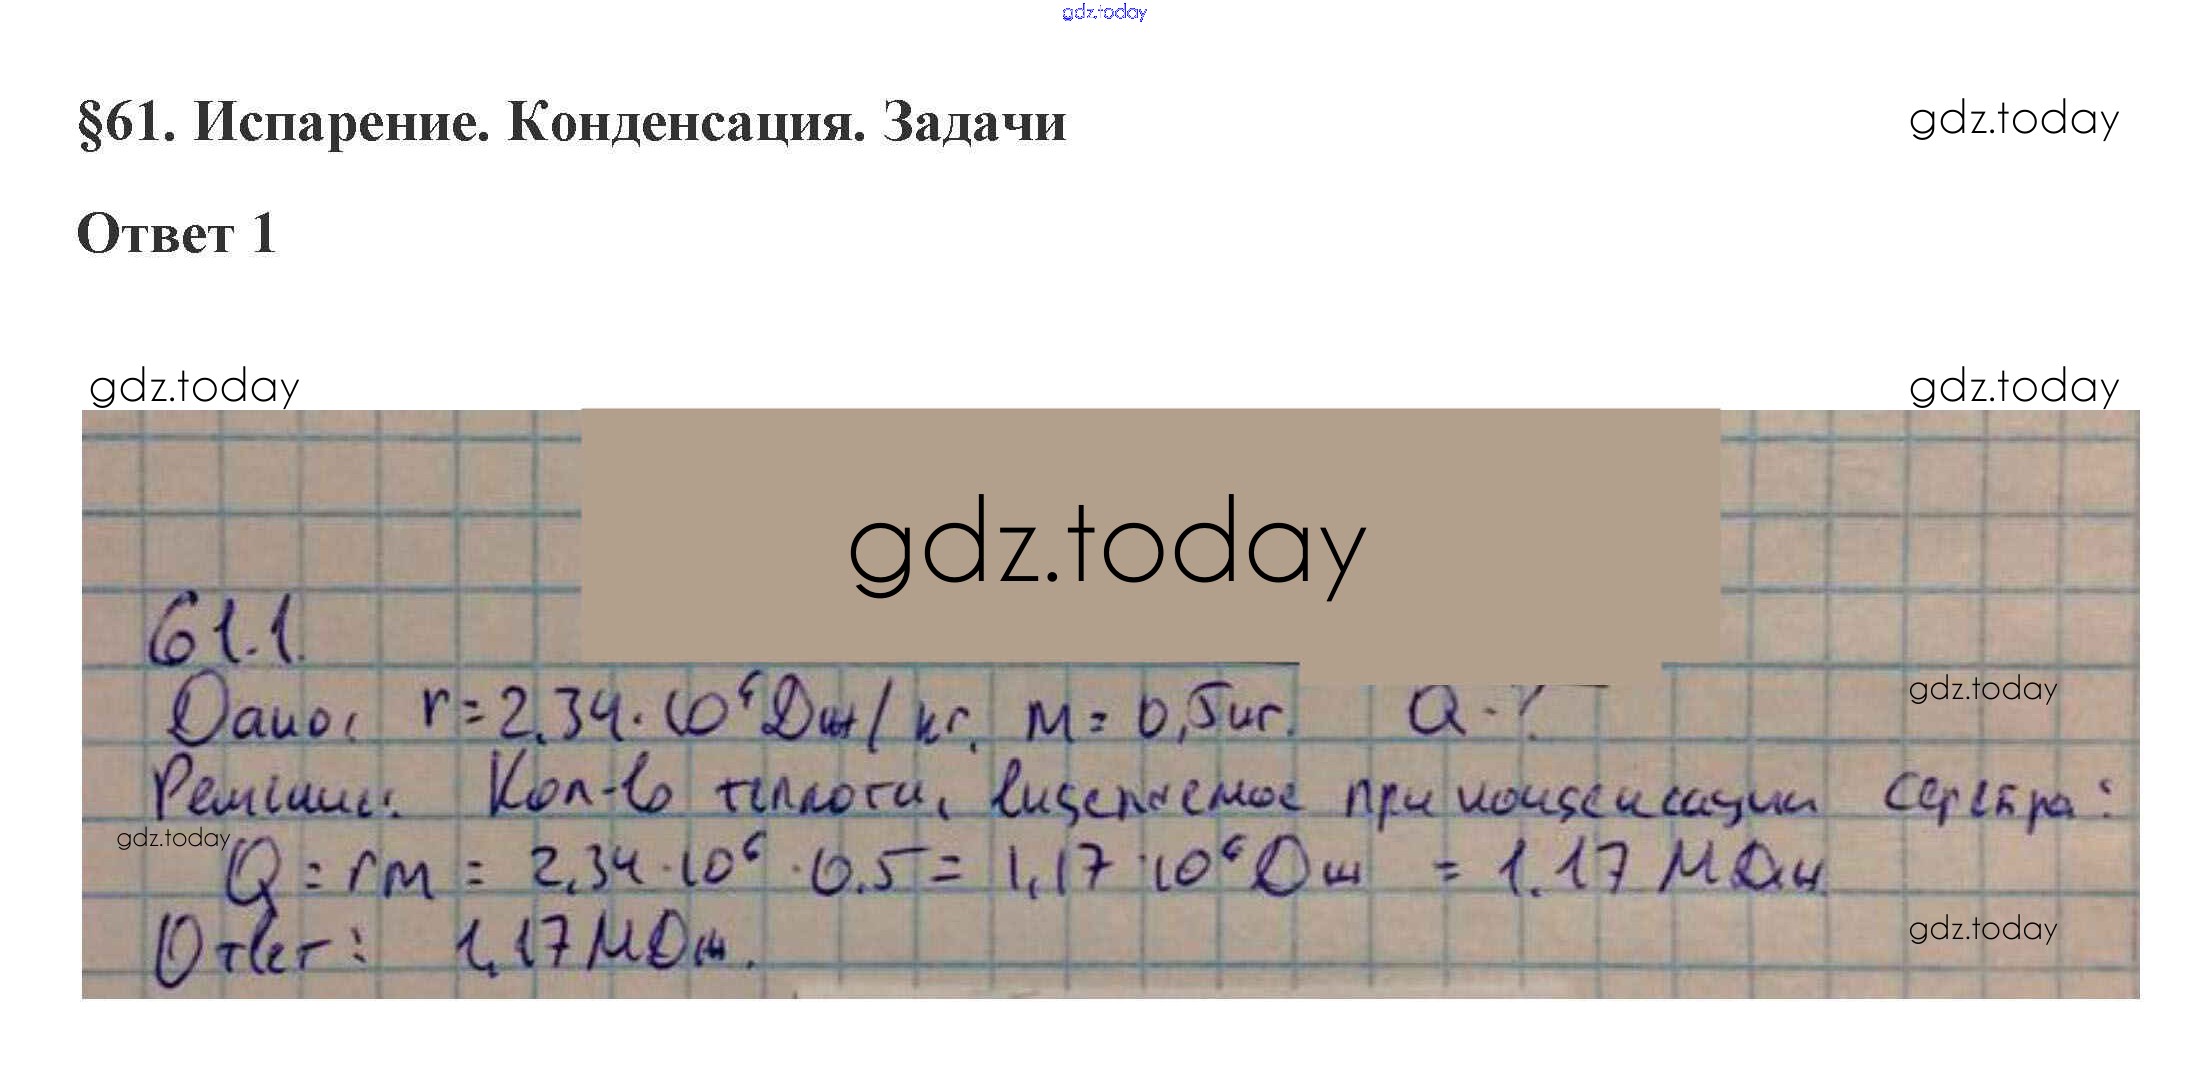 gdz.today
§61. Испарение. Конденсация. Задачи
gdz.today
Ответ 1
gdz.today
gdz.today
gdz.today
61.1.
Дано: r = 2,34 · 10⁶ Дж/кг, m = 0,5 кг. Q - ?
gdz.today
Решение: Кол-во теплоты, выделяемое при конденсации серебра:
gdz.today
Q = rm = 2,34 · 10⁶ · 0.5 = 1,17 · 10⁶ Дж = 1.17 МДж
Ответ: 1,17 МДж.
gdz.today